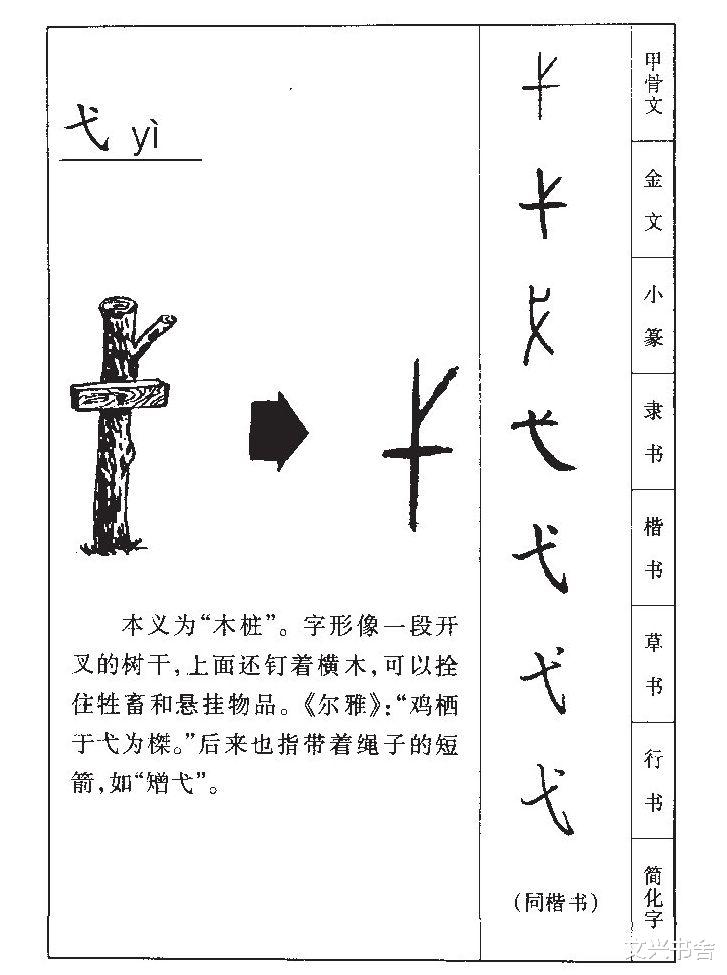 弋 yì
本义为“木桩”。字形像一段开
叉的树干，上面还钉着横木，可以拴
住牲畜和悬挂物品。《尔雅》：“鸡栖
于弋为榤。”后来也指带着绳子的短
箭，如“矰弋”。
弋
弋
弋
弋
弋
弋
弋
（同楷书）
甲骨文
金文
小篆
隶书
楷书
草书
行书
简化字
文兴书舍